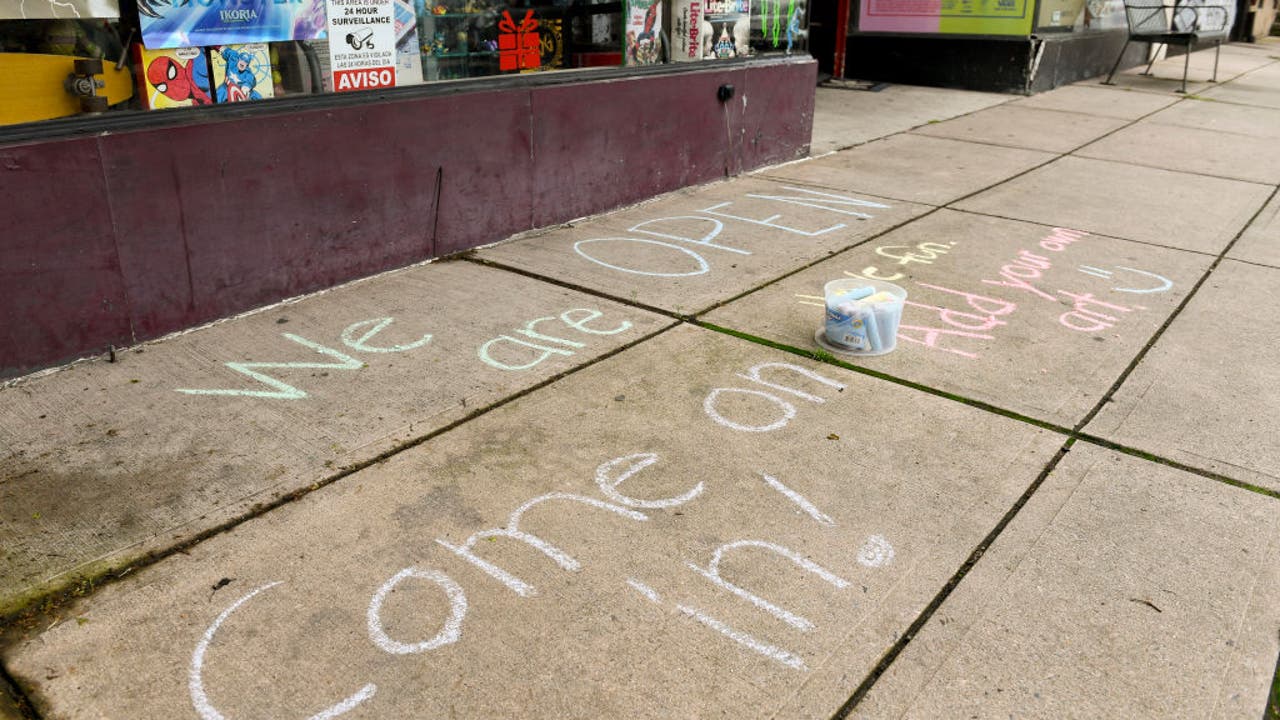 IKORIA
THIS AREA IS UNDER
24 HOUR
SURVEILLANCE
ESTA ZONA ES VIGILADA
LAS 24 HORAS DEL DIA
AVISO
Lite-Brite
Lite-Brite
We are OPEN
Come on
in!
fun.
Add your own
art